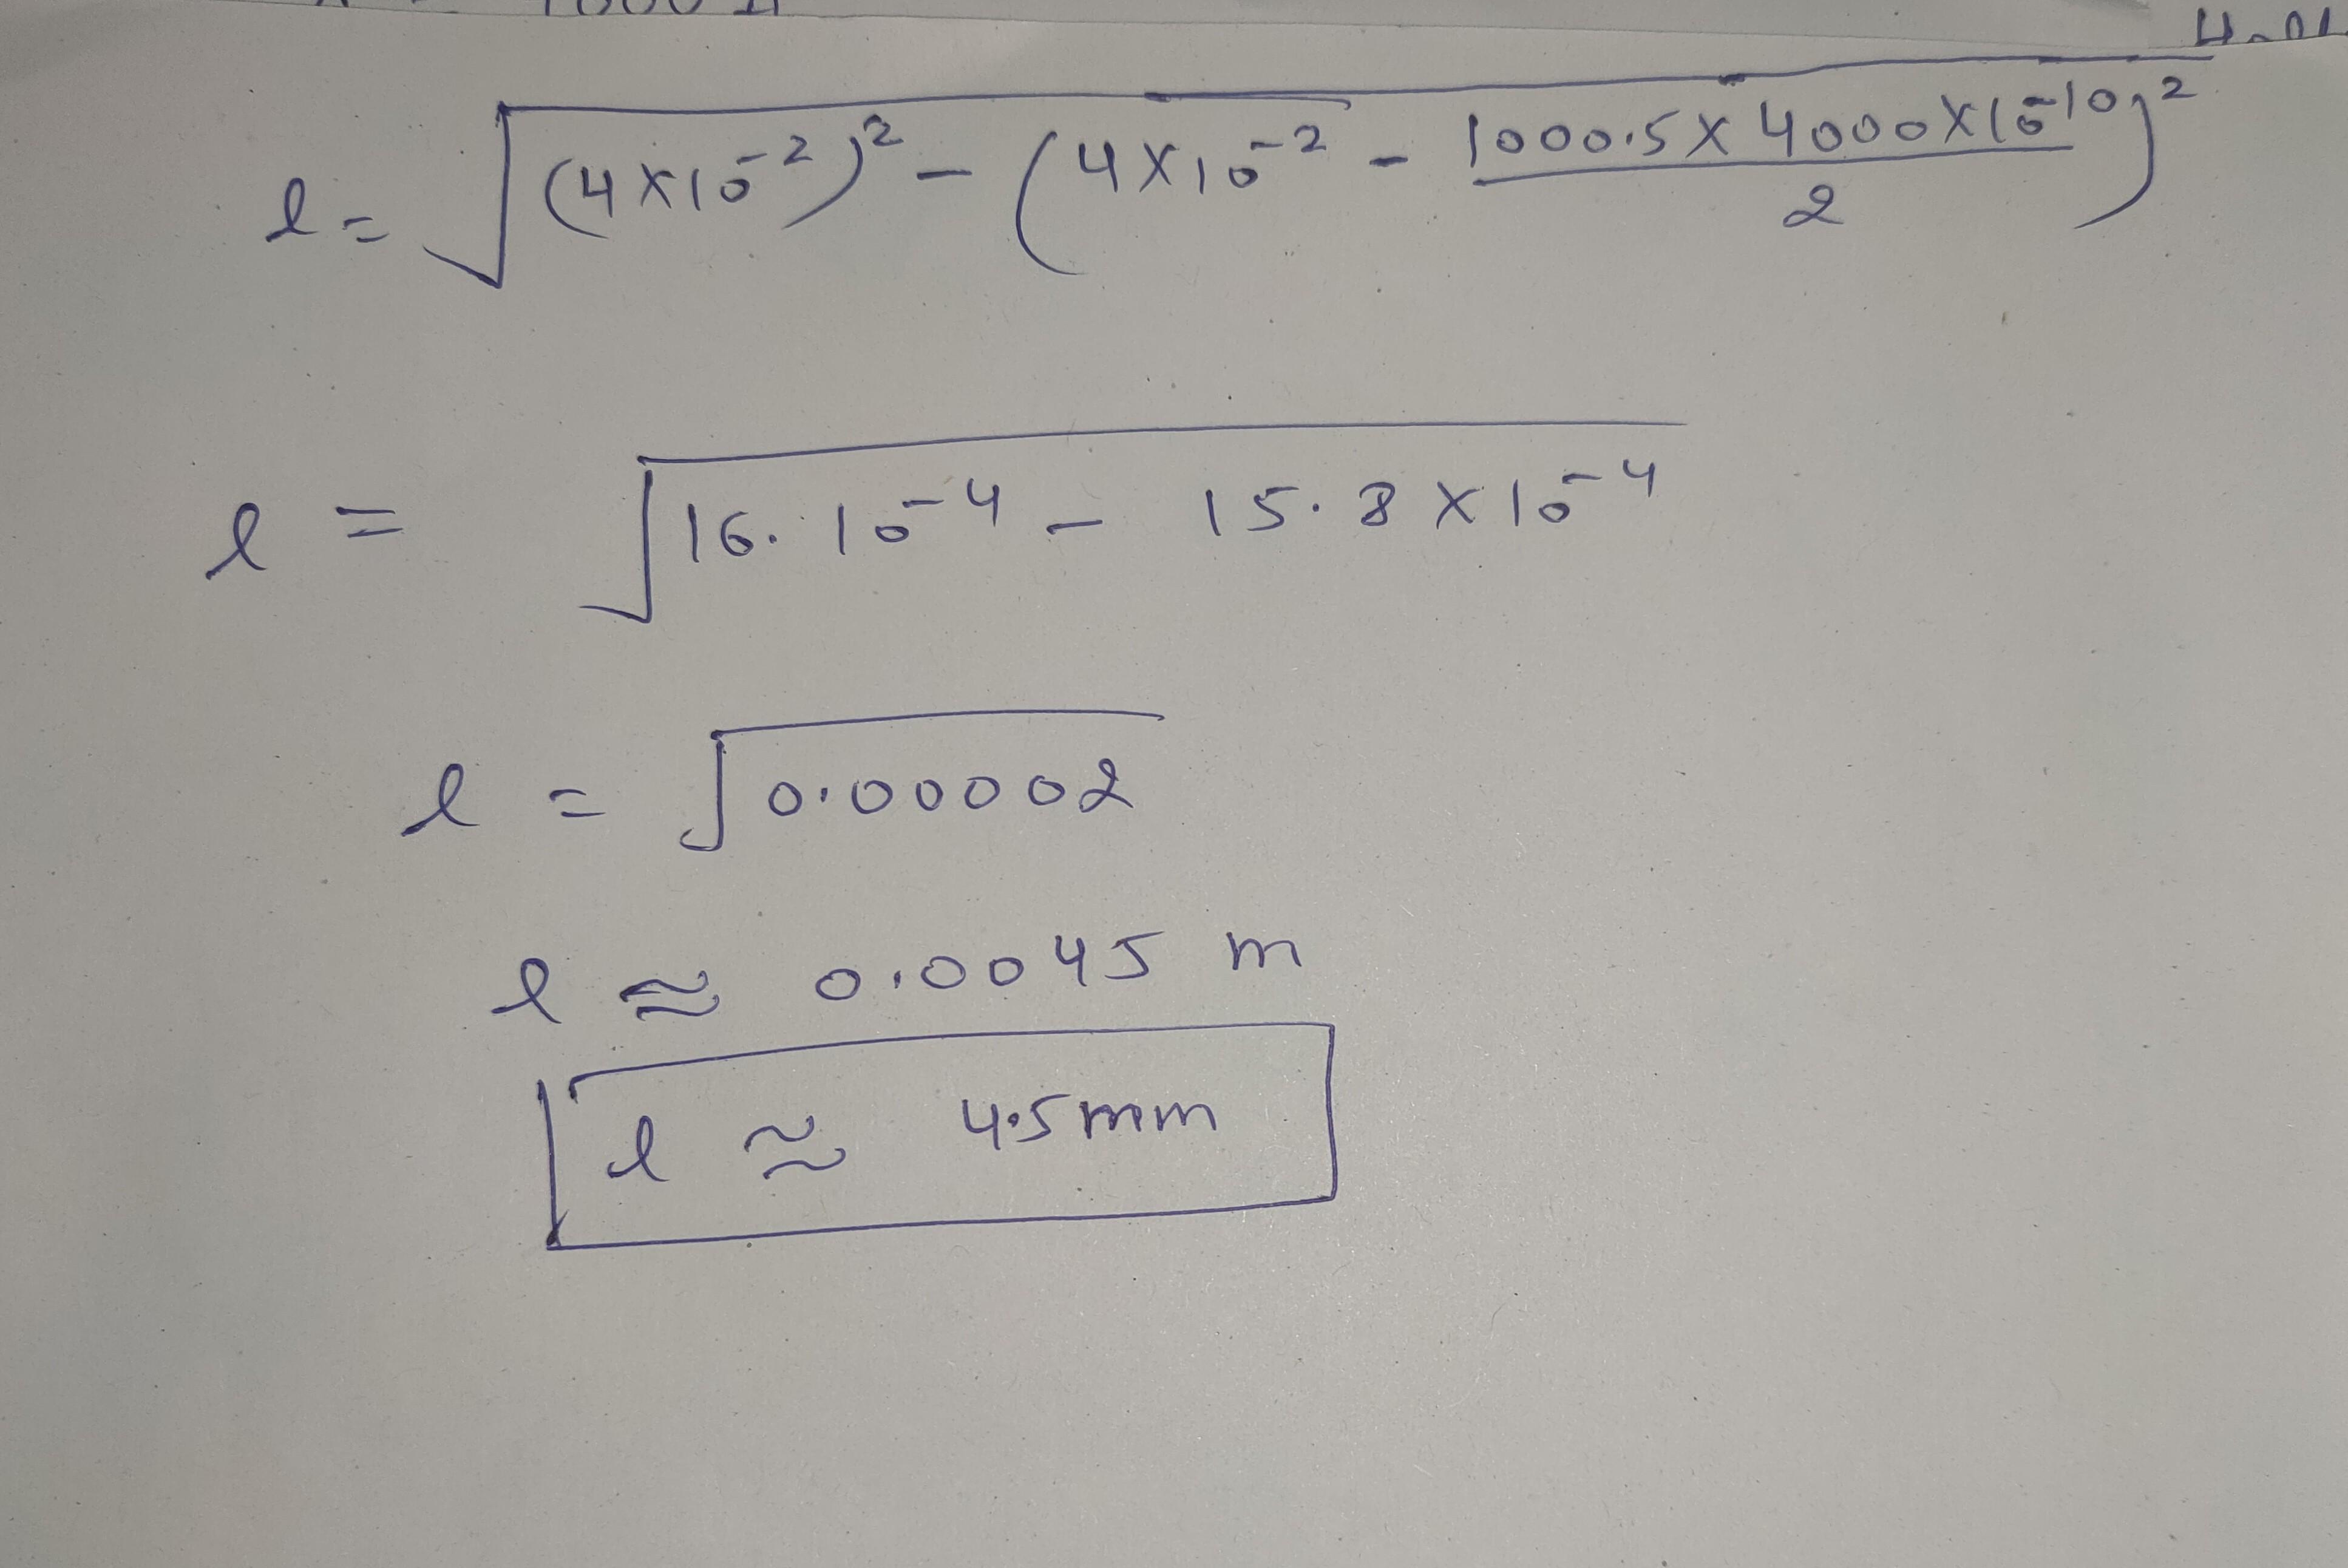 l = √((4×10⁻²)² - (4×10⁻² - (1000.5×4000×10⁻¹⁰)/2)²)
l = √(16.10⁻⁴ - 15.8×10⁻⁴)
l = √0.00002
l ≈ 0.0045 m
l ≈ 4.5mm